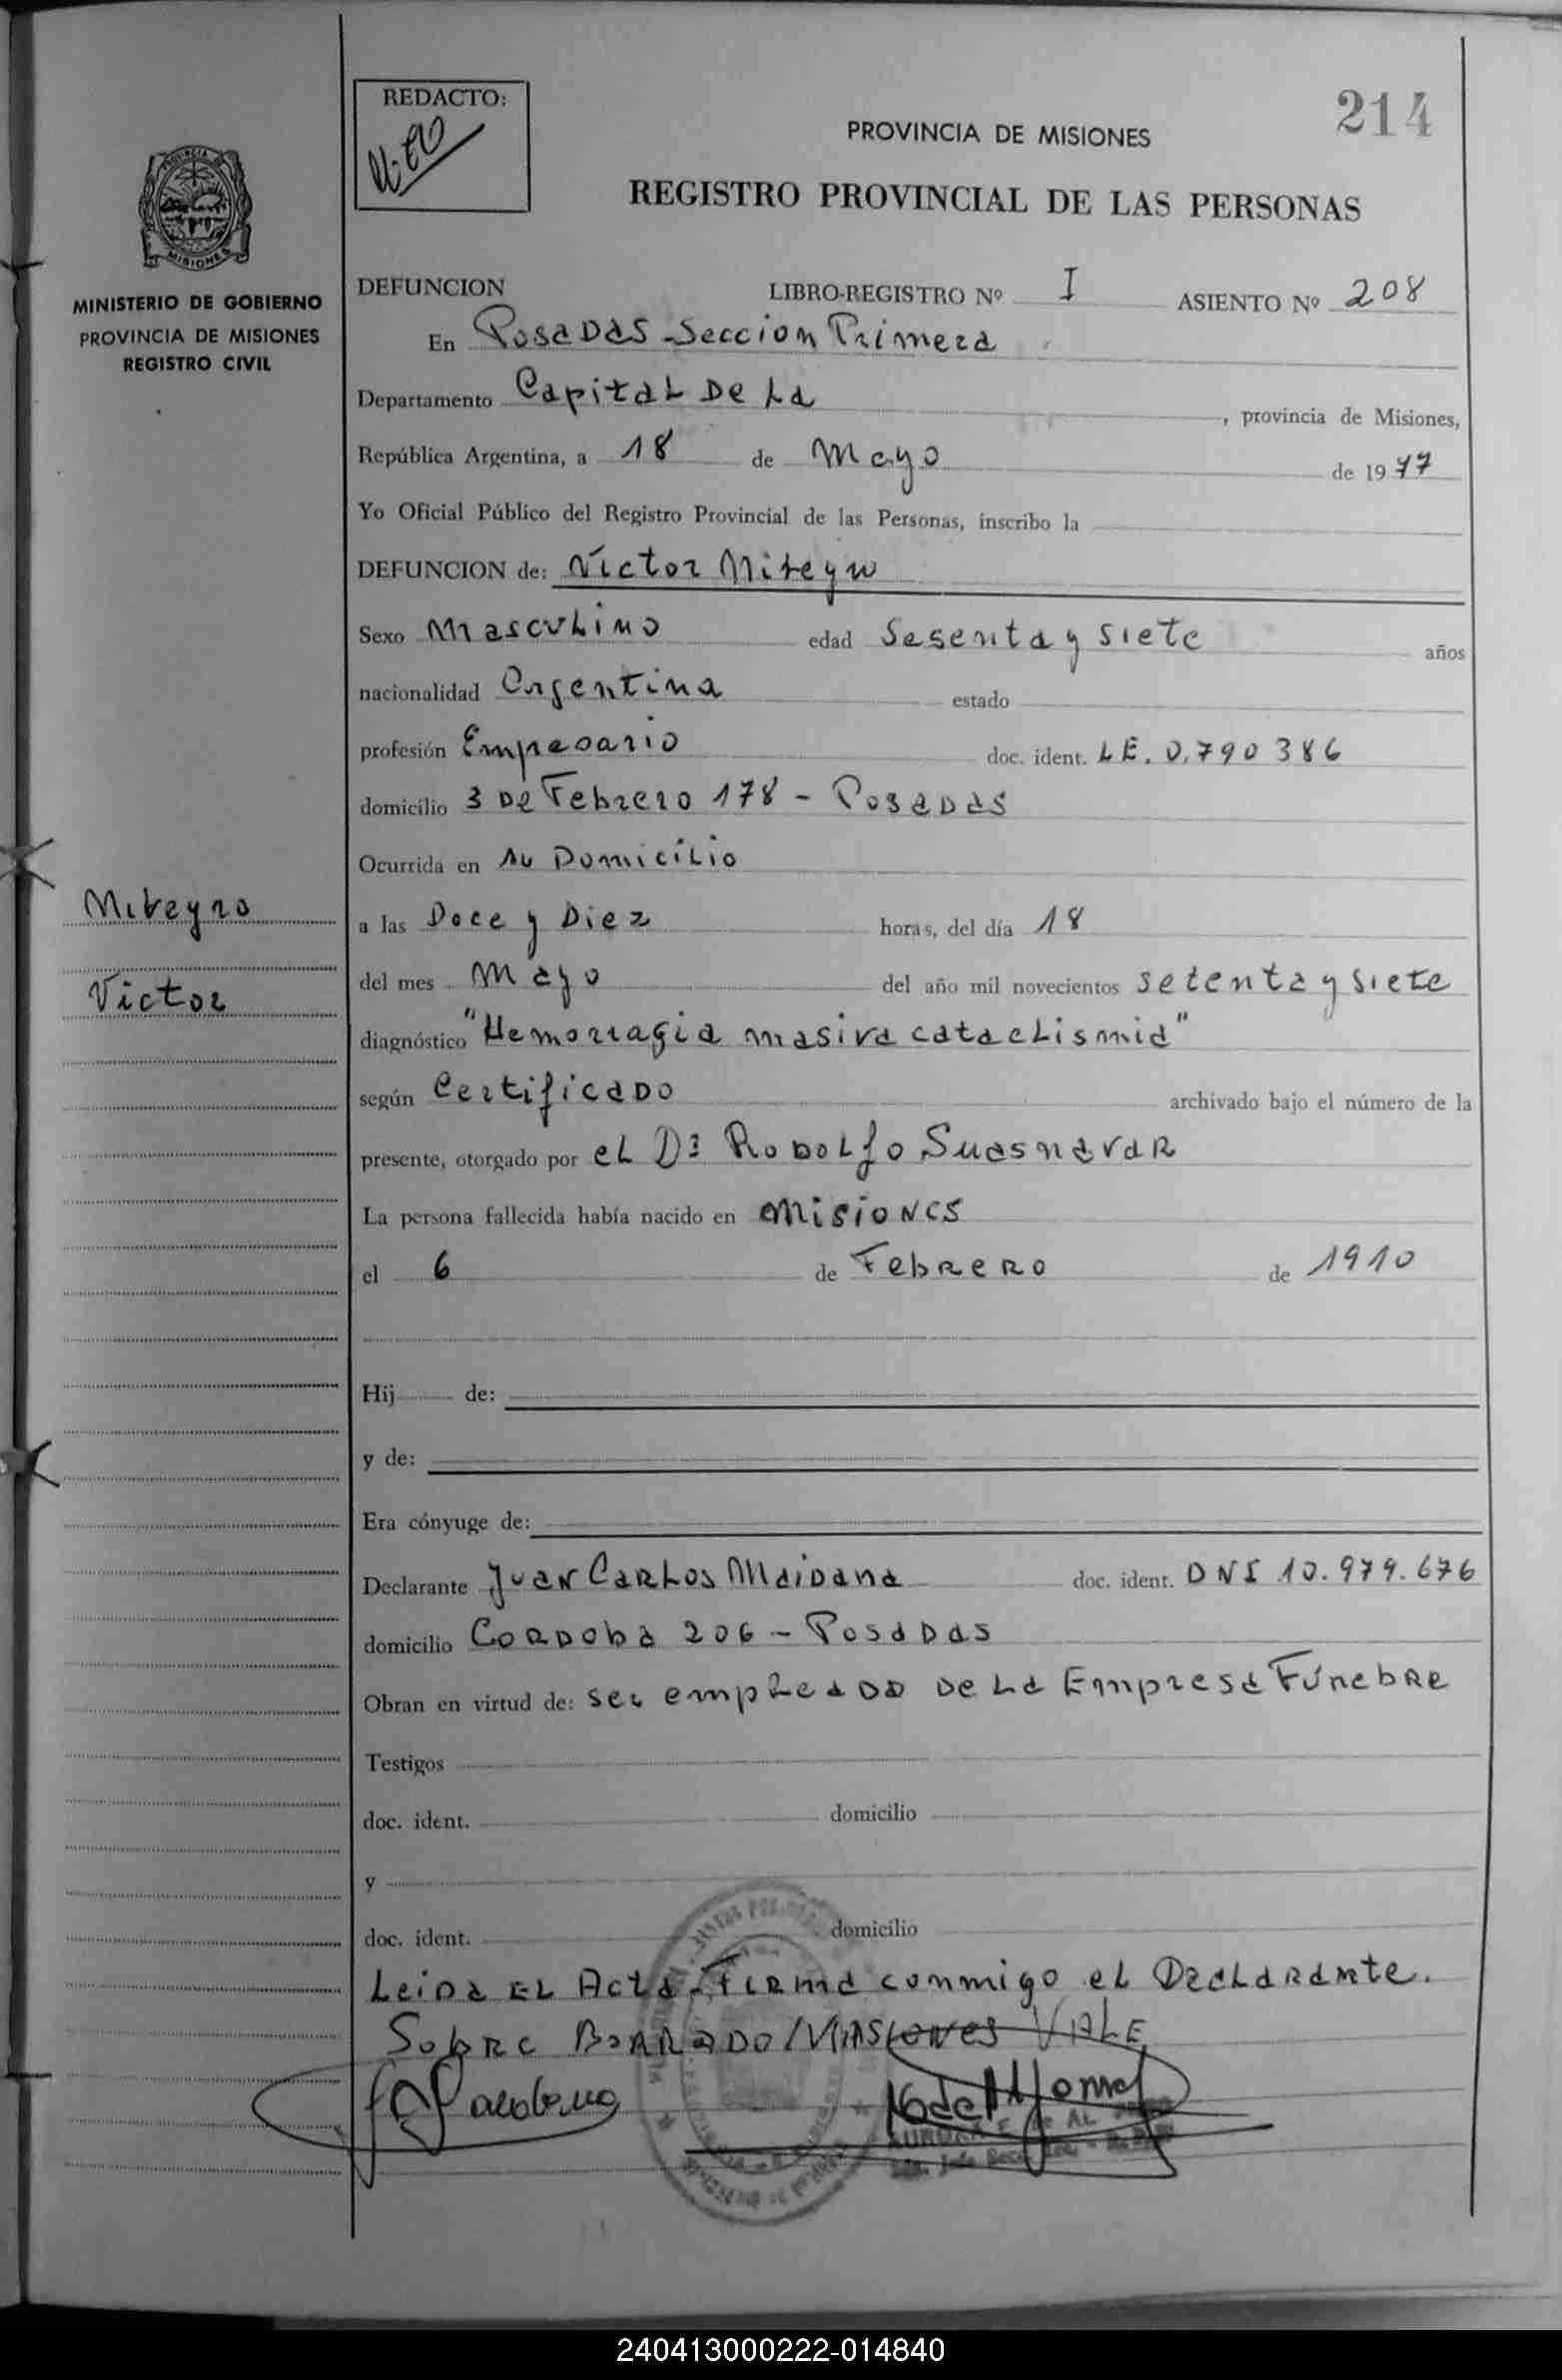 REDACTO:
214
PROVINCIA DE MISIONES
REGISTRO PROVINCIAL DE LAS PERSONAS
MISIONES
MINISTERIO DE GOBIERNO
PROVINCIA DE MISIONES
REGISTRO CIVIL
DEFUNCION LIBRO-REGISTRO Nº I ASIENTO Nº 208
En Posadas - Seccion Primera
Departamento Capital De La , provincia de Misiones,
República Argentina, a 18 de Mayo de 1977
Yo Oficial Público del Registro Provincial de las Personas, inscribo la
DEFUNCION de: Victor
Sexo Masculino edad Sesenta y siete años
nacionalidad Argentina estado
profesión Empresario doc. ident. L E. 0.790 386
domicilio 3 De Febrero 178 - Posadas
Ocurrida en su Domicilio
Victor
a las Doce y Diez horas, del día 18
del mes Mayo del año mil novecientos setenta y siete
diagnóstico "Hemorragia masiva cataclismia"
según Certificado archivado bajo el número de la
presente, otorgado por el Dr Rodolfo Suasnavar
La persona fallecida había nacido en Misiones
el 6 de Febrero de 1910
Hij de:
y de:
Era cónyuge de:
Declarante Juan Carlos Maidana doc. ident. DNI 10.979.676
domicilio Cordoba 206 - Posadas
Obran en virtud de: ser empleado de la Empresa Fúnebre
Testigos
doc. ident. domicilio
y
doc. ident. domicilio
Leida el Acta - Firma conmigo el Declarante.
Sobre Borrado / Misiones Vale
240413000222-014840